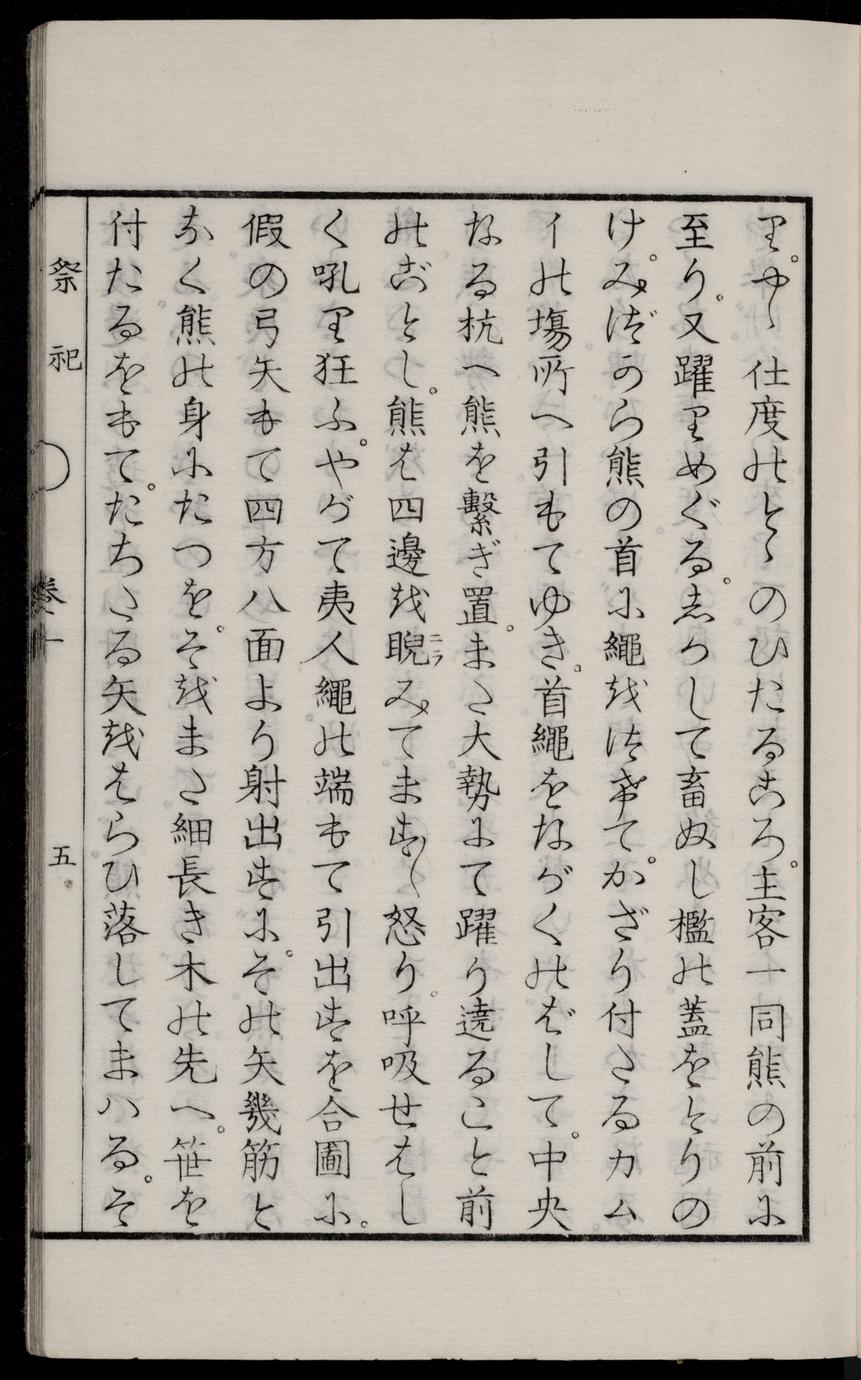 り。やゝ仕度のとゝのひたるころ。主客一同熊の前に
至り。又躍りめぐる。しかして畜ぬし檻の蓋をとりの
け。みづから熊の首に繩をつけて。かざり付たるカム
イの塲所へ引もてゆき。首繩をながくのばして。中央
なる杭へ熊を繋ぎ置。また大勢にて躍り遶ること前
のごとし。熊は四邊を睨ニラみてます〳〵怒り。呼吸せはし
く吼り狂ふ。やがて夷人繩の端もて引出すを合圖に。
假の弓矢もて四方八面より射出すに。その矢幾筋と
なく熊の身にたつを。そをまた細長き木の先へ。笹を
付たるをもて。たちたる矢をはらひ落してまハる。そ
祭祀
卷一
五